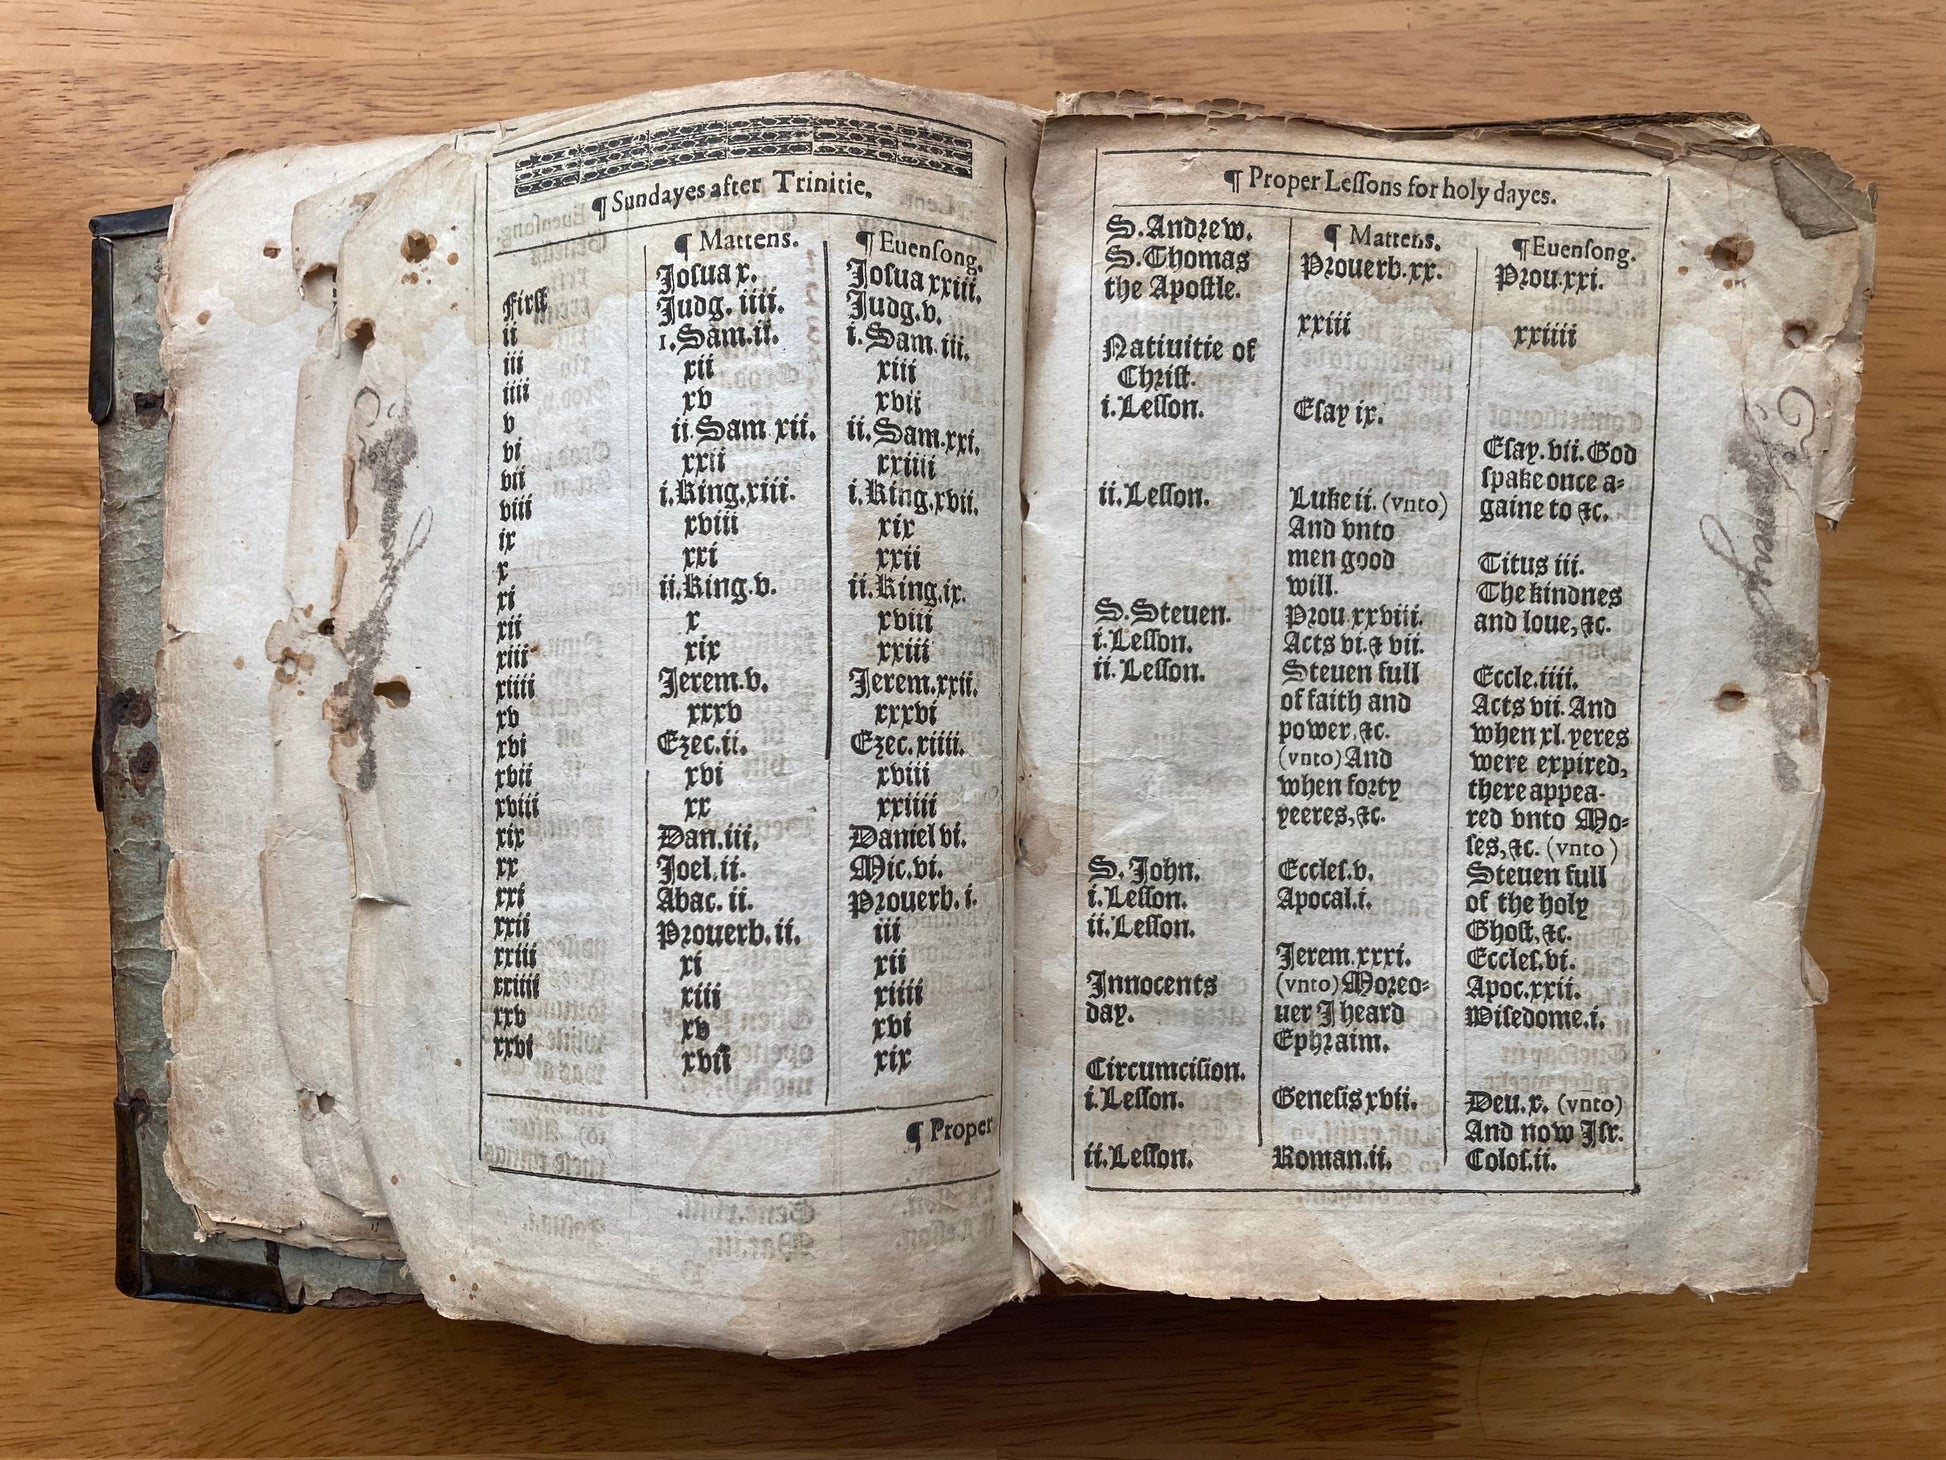 ¶ Sundayes after Trinitie.
Firſt
ii
iii
iiii
v
vi
vii
viii
ix
x
xi
xii
xiii
xiiii
xv
xvi
xvii
xviii
xix
xx
xxi
xxii
xxiii
xxiiii
xxv
xxvi
¶ Mattens.
Joſua x.
Judg. iiii.
1.Sam.ii.
xii
xv
ii.Sam xii.
xxii
i.King.xiii.
xviii
xxi
ii.King.v.
x
xix
Jerem.v.
xxxv
Ezec.ii.
xvi
xx
Dan.iii.
Joel.ii.
Abac. ii.
Prouerb.ii.
xi
xiii
xv
xvii
¶ Euenſong.
Joſua xxiii.
Judg.v.
i.Sam.iii.
xiii
xvii
ii.Sam.xxi.
xxiiii
i.King.xvii.
xix
xxii
ii.King.ix.
xviii
xxiii
Jerem.xxii.
xxxvi
Ezec.xiiii.
xviii
xxiiii
Daniel vi.
Mic.vi.
Prouerb.i.
iii
xii
xiiii
xvi
xix
¶ Proper
¶ Proper Leſſons for holy dayes.
S.Andrew.
S.Thomas
the Apoſtle.
Natiuitie of
Chriſt.
i.Leſſon.
ii.Leſſon.
S.Steuen.
i.Leſſon.
ii.Leſſon.
S. John.
i.Leſſon.
ii.Leſſon.
Innocents
day.
Circumciſion.
i.Leſſon.
ii.Leſſon.
¶ Mattens.
Prouerb.xx.
xxiii
Eſay ix.
Luke ii. (vnto)
And vnto
men good
will.
Prou.xxviii.
Acts vi.& vii.
Steuen full
of faith and
power,&c.
(vnto) And
when forty
yeeres,&c.
Eccleſ.v.
Apocal.i.
Jerem.xxxi.
(vnto) Moreo-
uer I heard
Ephraim.
Geneſis xvii.
Roman.ii.
¶ Euenſong.
Prou.xxi.
xxiiii
Eſay.vii.God
ſpake once a-
gaine to &c.
Titus iii.
The kindnes
and loue,&c.
Eccle.iiii.
Acts vii. And
when xl. yeres
were expired,
there appea-
red vnto Mo-
ſes,&c. (vnto)
Steuen full
of the holy
Ghoſt,&c.
Eccleſ.vi.
Apoc.xxii.
Wiſedome.i.
Deu.x. (vnto)
And now Iſr.
Coloſ.ii.